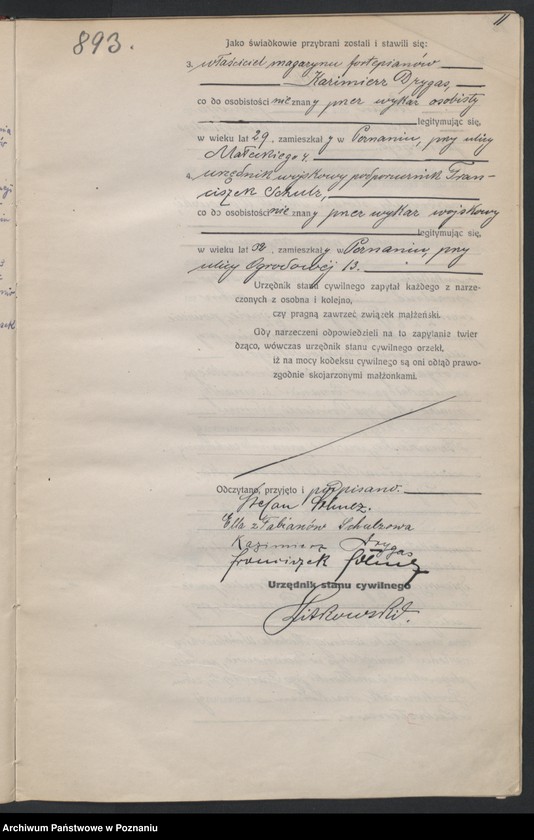 11
893.
Jako świadkowie przybrani zostali i stawili się:
3. właściciel magazynu fortepianów
Kazimierz Drygas,
co do osobistości nie znany przez wykaz osobisty
legitymując się,
w wieku lat 29, zamieszkały w Poznaniu, przy ulicy
Małeckiego 4.
4. urzędnik wojskowy podporucznik Fran-
ciszek Schulz,
co do osobistości nie znany przez wykaz wojskowy
legitymując się,
w wieku lat, zamieszkały w Poznaniu, przy
ulicy Ogrodowej 13.
Urzędnik stanu cywilnego zapytał każdego z narze-
czonych z osobna i kolejno,
czy pragną zawrzeć związek małżeński.
Gdy narzeczeni odpowiedzieli na to zapytanie twier
dząco, wówczas urzędnik stanu cywilnego orzekł,
iż na mocy kodeksu cywilnego są oni odtąd prawo-
zgodnie skojarzonymi małżonkami.
Odczytano, przyjęto i podpisano.
Stefan Schulz.
Ella z Fabianów Schulzowa
Kazimierz Drygas
Franciszek Schulz
Urzędnik stanu cywilnego
Witkowski.
Archiwum Państwowe w Poznaniu